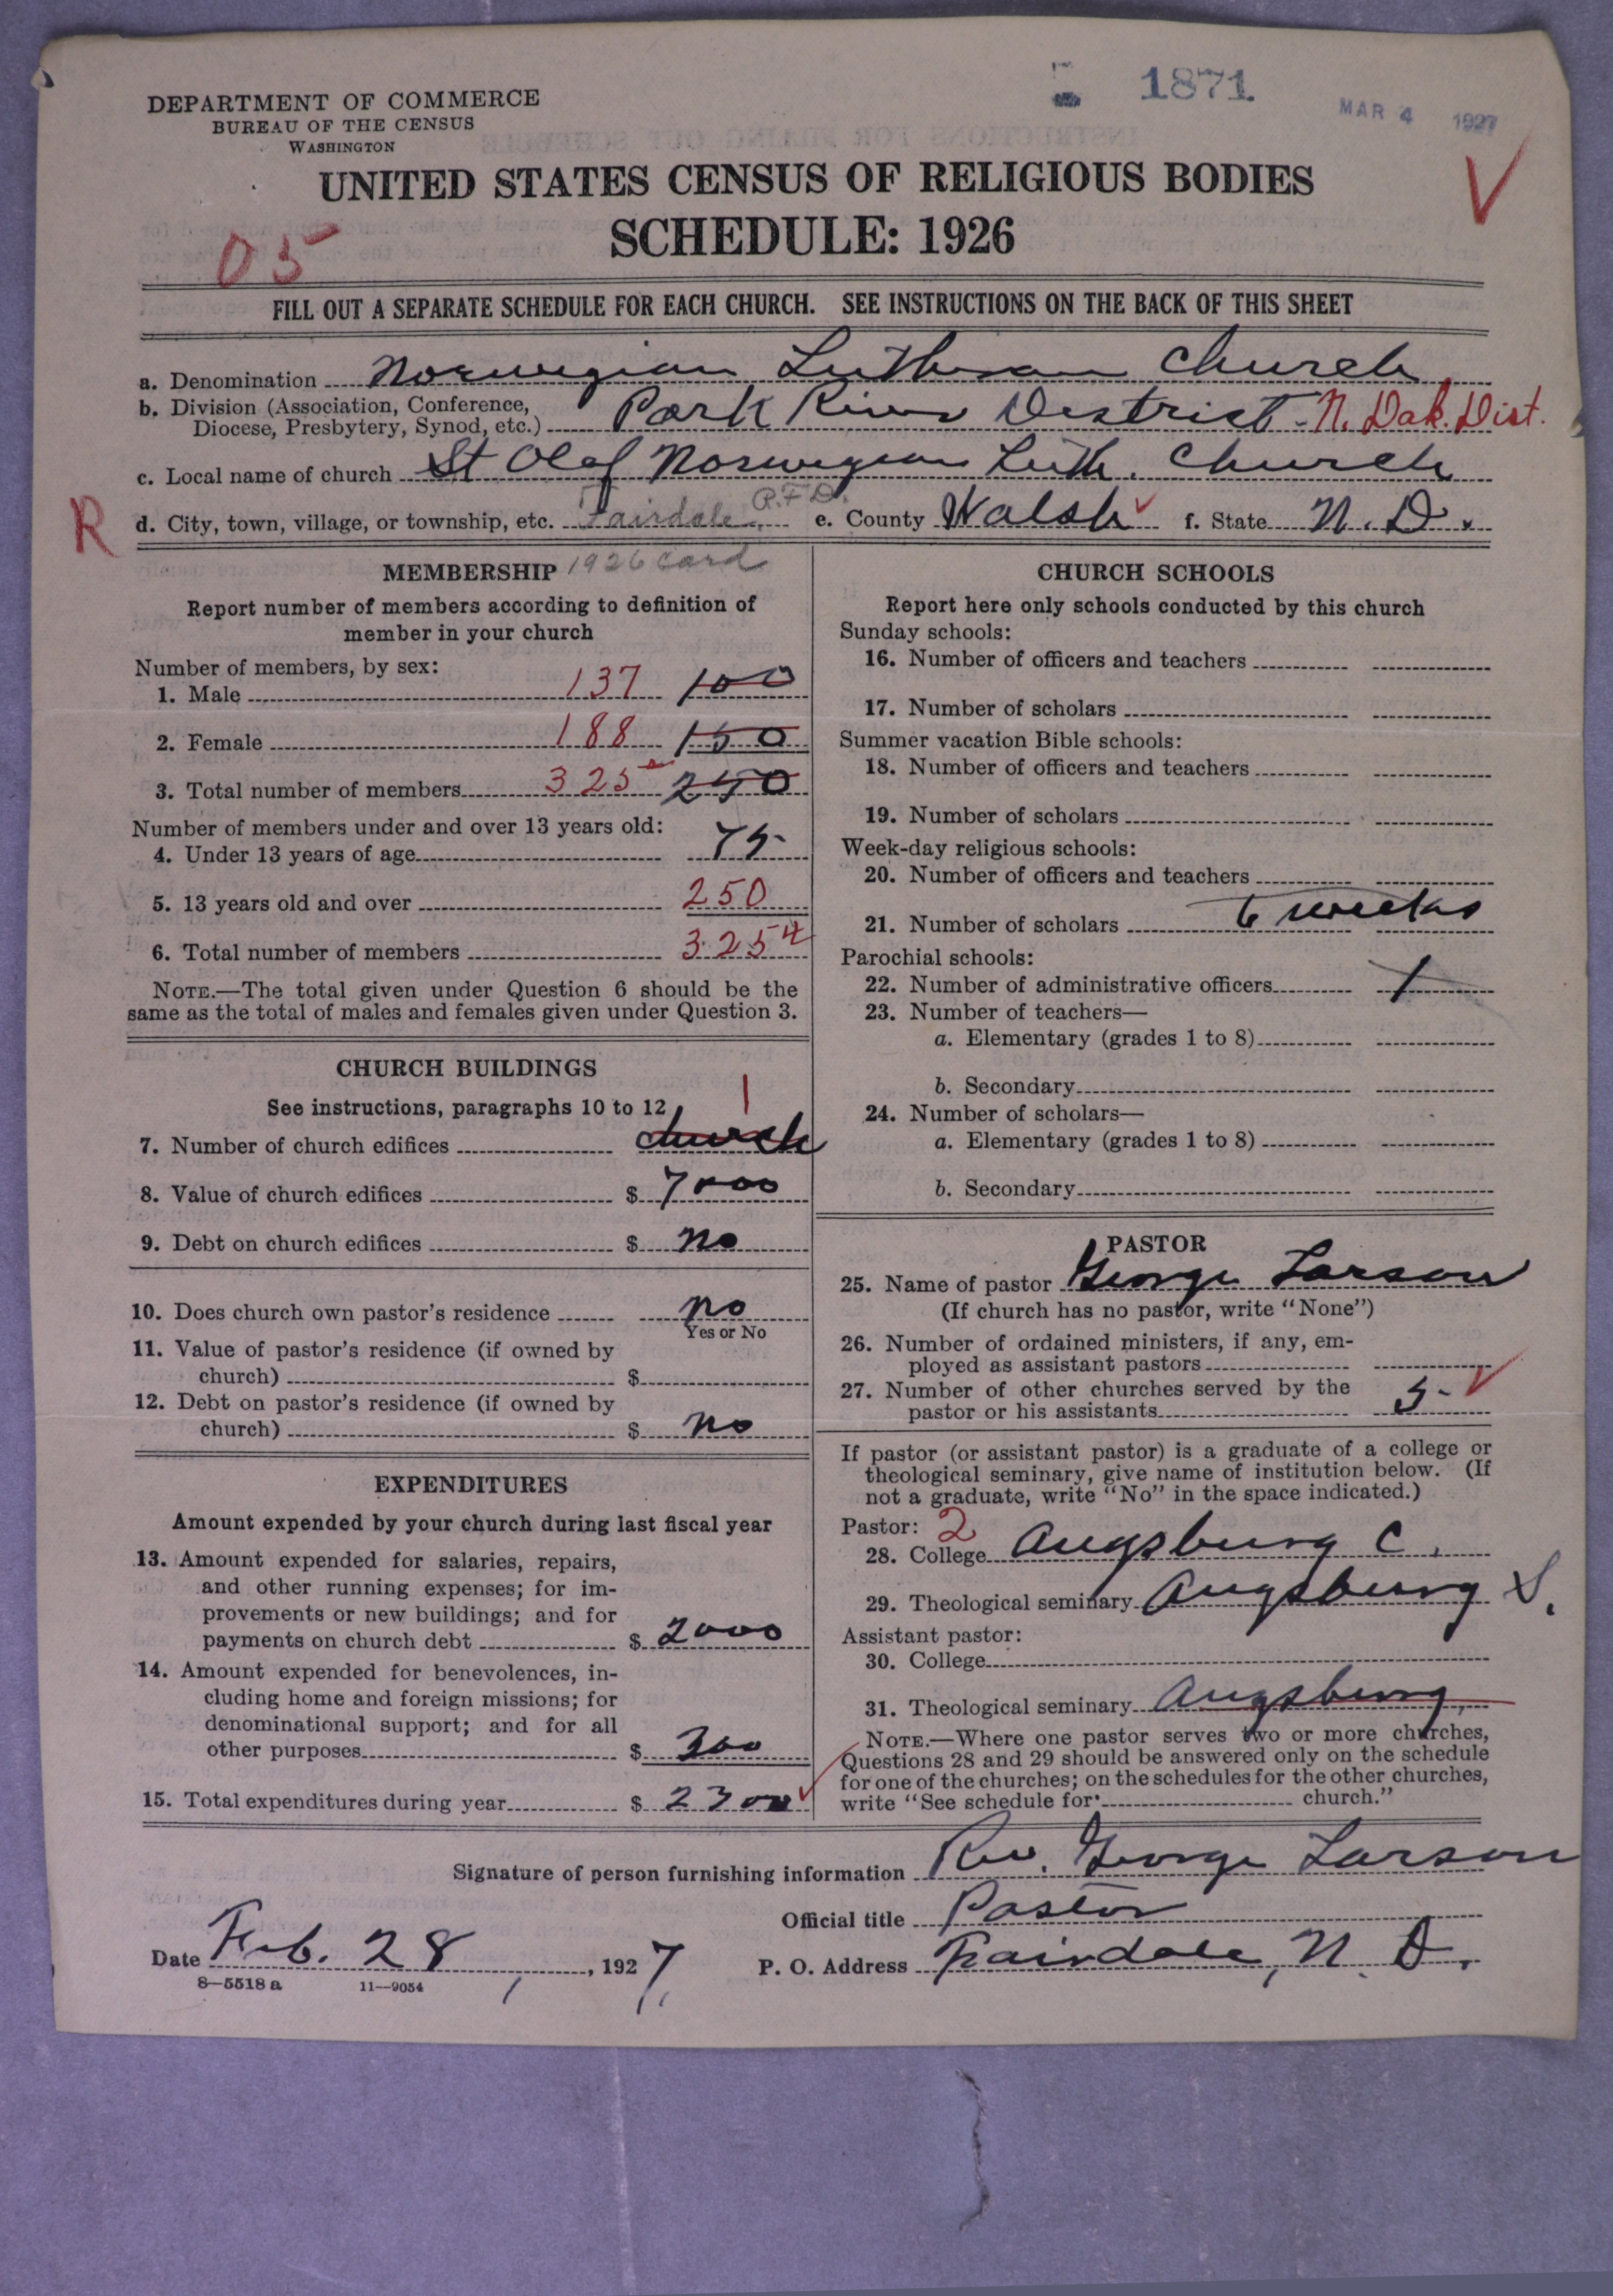 1871
MAR 4 1927
DEPARTMENT OF COMMERCE
BUREAU OF THE CENSUS
WASHINGTON
UNITED STATES CENSUS OF RELIGIOUS BODIES
SCHEDULE: 1926
V
05
FILL OUT A SEPARATE SCHEDULE FOR EACH CHURCH. SEE INSTRUCTIONS ON THE BACK OF THIS SHEET
a. Denomination Norwegian Lutheran Church
b. Division (Association, Conference, Diocese, Presbytery, Synod, etc.) Park River District - N. Dak. Dist.
c. Local name of church St Olaf Norwegian Luth. Church
R
d. City, town, village, or township, etc. Fairdale R.F.D. e. County Walsh f. State N. D.
MEMBERSHIP 1926 card
Report number of members according to definition of
member in your church
Number of members, by sex:
1. Male 137 100
2. Female 188 150
3. Total number of members 325 250
Number of members under and over 13 years old:
4. Under 13 years of age 75
5. 13 years old and over 250
6. Total number of members 325
NOTE.—The total given under Question 6 should be the
same as the total of males and females given under Question 3.
CHURCH BUILDINGS
See instructions, paragraphs 10 to 12
7. Number of church edifices church 1
8. Value of church edifices $ 7000
9. Debt on church edifices $ no
10. Does church own pastor's residence no
Yes or No
11. Value of pastor's residence (if owned by
church) $
12. Debt on pastor's residence (if owned by
church) $ no
EXPENDITURES
Amount expended by your church during last fiscal year
13. Amount expended for salaries, repairs,
and other running expenses; for im-
provements or new buildings; and for
payments on church debt $ 2000
14. Amount expended for benevolences, in-
cluding home and foreign missions; for
denominational support; and for all
other purposes $ 300
15. Total expenditures during year $ 2300
CHURCH SCHOOLS
Report here only schools conducted by this church
Sunday schools:
16. Number of officers and teachers
17. Number of scholars
Summer vacation Bible schools:
18. Number of officers and teachers
19. Number of scholars
Week-day religious schools:
20. Number of officers and teachers
21. Number of scholars 6 weeks
Parochial schools:
22. Number of administrative officers 1
23. Number of teachers—
a. Elementary (grades 1 to 8)
b. Secondary
24. Number of scholars—
a. Elementary (grades 1 to 8)
b. Secondary
PASTOR
25. Name of pastor George Larson
(If church has no pastor, write "None")
26. Number of ordained ministers, if any, em-
ployed as assistant pastors
27. Number of other churches served by the
pastor or his assistants 5
If pastor (or assistant pastor) is a graduate of a college or
theological seminary, give name of institution below. (If
not a graduate, write "No" in the space indicated.)
Pastor: 2
28. College Augsburg C.
29. Theological seminary Augsburg S.
Assistant pastor:
30. College
31. Theological seminary Augsburg
NOTE.—Where one pastor serves two or more churches,
Questions 28 and 29 should be answered only on the schedule
for one of the churches; on the schedules for the other churches,
write "See schedule for church."
Signature of person furnishing information Rev. George Larson
Official title Pastor
Date Feb. 28, 1927. P. O. Address Fairdale, N. D.
8—5518 a 11—9054